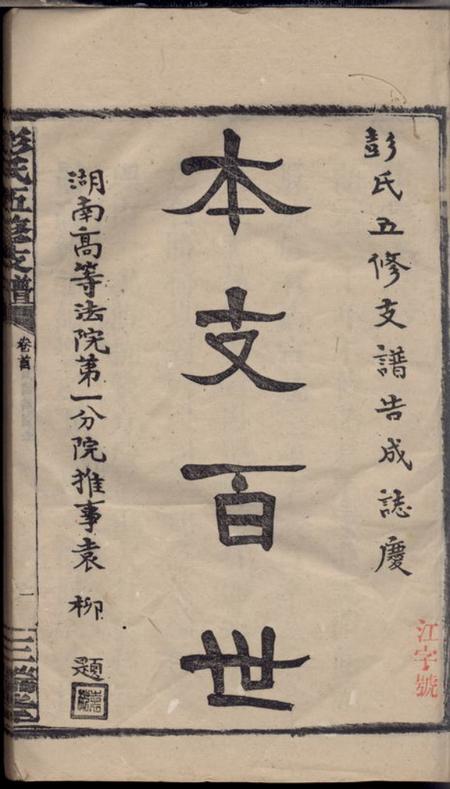 彭氏五修支譜告成誌慶
本支百世
湖南高等法院第一分院推事袁柳題
江字號
彭氏五修支譜
卷首
一